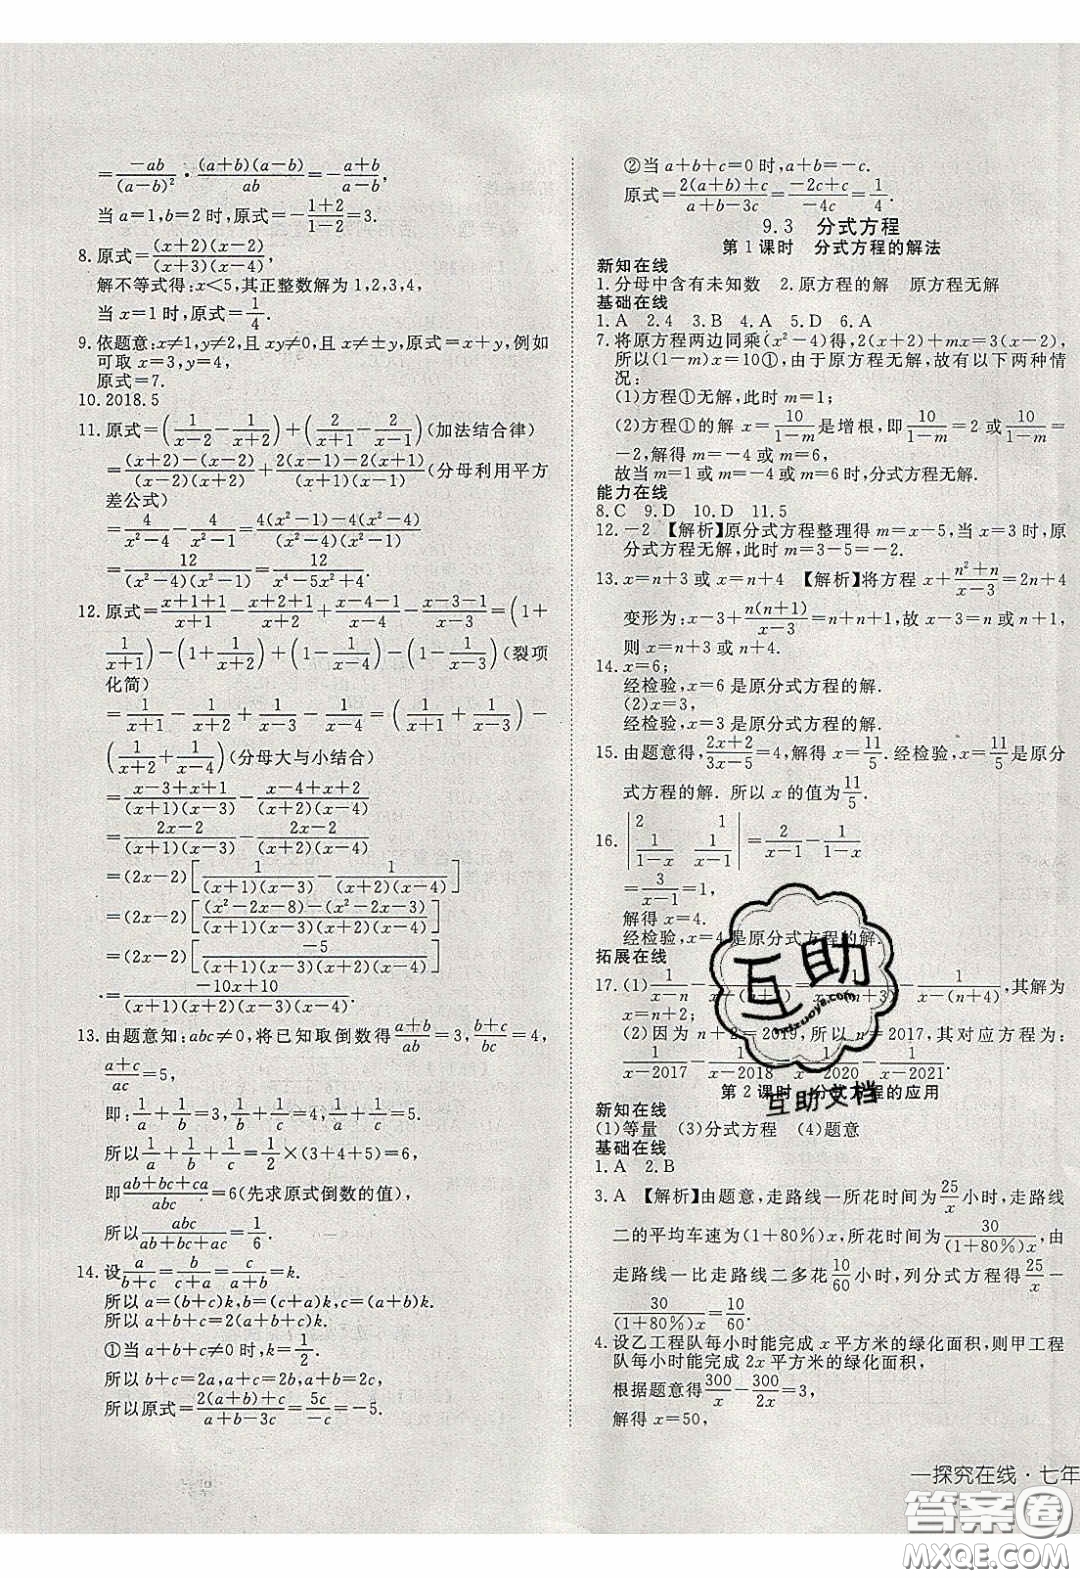 =\frac{-ab}{(a-b)²}·\frac{(a+b)(a-b)}{ab}=-\frac{a+b}{a-b},
当 a=1,b=2 时,原式=-\frac{1+2}{1-2}=3.
8. 原式=\frac{(x+2)(x-2)}{(x+2)(x+3)(x-2)},
解不等式得:x<5,其正整数解为 1,2,3,4,
当 x=1 时,原式=\frac{1}{4}.
9. 依题意:x≠1,y≠2,且 xy≠0,且 x≠±y,原式=x+y,例如
可取 x=3,y=4,
原式=7.
10. 2018.5
11. 原式=(\frac{1}{x-2}-\frac{1}{x+2})+(\frac{2}{x+1}-\frac{2}{x-1})(加法结合律)
=\frac{(x+2)-(x-2)}{(x-2)(x+2)}+\frac{2(x-1)-2(x+1)}{(x+1)(x-1)}(分母利用平方
差公式)
=\frac{4}{x²-4}-\frac{4}{x²-1}=\frac{4(x²-1)-4(x²-4)}{(x²-4)(x²-1)}
=\frac{12}{(x²-4)(x²-1)}=\frac{12}{x⁴-5x²+4}.
12. 原式=\frac{x+1+1}{x+1}-\frac{x+2+1}{x+2}+\frac{x-4-1}{x-4}-\frac{x-3-1}{x-3}=(1+
\frac{1}{x+1})-(1+\frac{1}{x+2})+(1-\frac{1}{x-4})-(1-\frac{1}{x-3})(裂项
化简)
=\frac{1}{x+1}-\frac{1}{x+2}+\frac{1}{x-3}-\frac{1}{x-4}=(\frac{1}{x+1}+\frac{1}{x-3})-
(\frac{1}{x+2}+\frac{1}{x-4})(分母大与小结合)
=\frac{x-3+x+1}{(x+1)(x-3)}-\frac{x-4+x+2}{(x+2)(x-4)}
=\frac{2x-2}{(x+1)(x-3)}-\frac{2x-2}{(x+2)(x-4)}
=(2x-2)[\frac{1}{(x+1)(x-3)}-\frac{1}{(x+2)(x-4)}]
=(2x-2)[\frac{(x²-2x-8)-(x²-2x-3)}{(x+1)(x-3)(x+2)(x-4)}]
=(2x-2)[\frac{-5}{(x+1)(x-3)(x+2)(x-4)}]
=\frac{-10x+10}{(x+1)(x+2)(x-3)(x-4)}.
13. 由题意知:abc≠0,将已知取倒数得\frac{a+b}{ab}=3,\frac{b+c}{bc}=4,
\frac{a+c}{ac}=5,
即:\frac{1}{a}+\frac{1}{b}=3,\frac{1}{b}+\frac{1}{c}=4,\frac{1}{a}+\frac{1}{c}=5,
所以\frac{1}{a}+\frac{1}{b}+\frac{1}{c}=\frac{1}{2}×(3+4+5)=6,
即\frac{ab+bc+ca}{abc}=6(先求原式倒数的值),
所以\frac{abc}{ab+bc+ac}=\frac{1}{6}.
14. 设\frac{a}{b+c}=\frac{b}{c+a}=\frac{c}{a+b}=k.
所以 a=(b+c)k,b=(c+a)k,c=(a+b)k.
所以 a+b+c=2(a+b+c)k.
①当 a+b+c≠0 时,k=\frac{1}{2}.
所以 b+c=2a,a+c=2b,a+b=2c.
所以原式=\frac{2(a+b)+c}{a+b-3c}=\frac{5c}{-c}=-5.
②当 a+b+c=0 时,a+b=-c.
原式=\frac{2(a+b)+c}{a+b-3c}=\frac{-2c+c}{-4c}=\frac{1}{4}.
9.3 分式方程
第 1 课时 分式方程的解法
新知在线
1. 分母中含有未知数 2. 原方程的解 原方程无解
基础在线
1. A 2. 4 3. B 4. A 5. D 6. A
7. 将原方程两边同乘(x²-4)得,2(x+2)+mx=3(x-2),
所以(1-m)x=10①,由于原方程无解,故有以下两种情
况:
(1)方程①无解,此时 m=1;
(2)方程①的解 x=\frac{10}{1-m}是增根,即\frac{10}{1-m}=2 或\frac{10}{1-m}=
-2,解得 m=-4 或 m=6.
故当 m=1 或 m=-4 或 m=6 时,分式方程无解.
能力在线
8. C 9. D 10. D 11. 5
12. -2 【解析】原分式方程整理得 m=x-5,当 x=3 时,原
分式方程无解,此时 m=3-5=-2.
13. x=n+3 或 x=n+4 【解析】将方程 x+\frac{n²+n}{x-3}=2n+4
变形为:x-3+\frac{n(n+1)}{x-3}=n+n+1,故 x-3=n 或 n+1,
则 x=n+3 或 n+4.
14. x=6;
经检验,x=6 是原分式方程的解.
(2)x=3,
经检验,x=3 是原分式方程的解.
15. 由题意得,\frac{2x+2}{3x-5}=4,解得 x=\frac{11}{5}.经检验,x=\frac{11}{5}是原分
式方程的解. 所以 x 的值为\frac{11}{5}.
16. |2 1; \frac{1}{1-x} \frac{1}{x-1}|=\frac{2}{x-1}-\frac{1}{1-x}
=\frac{3}{x-1}=1,
解得 x=4.
经检验,x=4 是原分式方程的解.
拓展在线
17. (1)\frac{1}{x-n}-\frac{1}{x-(n+1)}=\frac{1}{x-(n+3)}-\frac{1}{x-(n+4)},其解为
x=n+2;
(2)因为 n+2=2019,所以 n=2017,其对应方程为:
\frac{1}{x-2017}-\frac{1}{x-2018}=\frac{1}{x-2020}-\frac{1}{x-2021}.
第 2 课时 分式方程的应用
新知在线
(1)等量 (3)分式方程 (4)题意
基础在线
1. A 2. B
3. A 【解析】由题意,走路线一所花时间为\frac{25}{x}小时,走路线
二的平均车速为(1+80%)x,所花时间为\frac{30}{(1+80%)x},由
走路线一比走路线二多花\frac{10}{60}小时,列分式方程得\frac{25}{x}-
\frac{30}{(1+80%)x}=\frac{10}{60}.
4. 设乙工程队每小时能完成 x 平方米的绿化面积,则甲工程
队每小时能完成 2x 平方米的绿化面积,
根据题意得\frac{300}{x}-\frac{300}{2x}=3,
解得 x=50,
互助
hdzuoye.com
互助文档
一探究在线·七年
答案圈
MXQE.COM